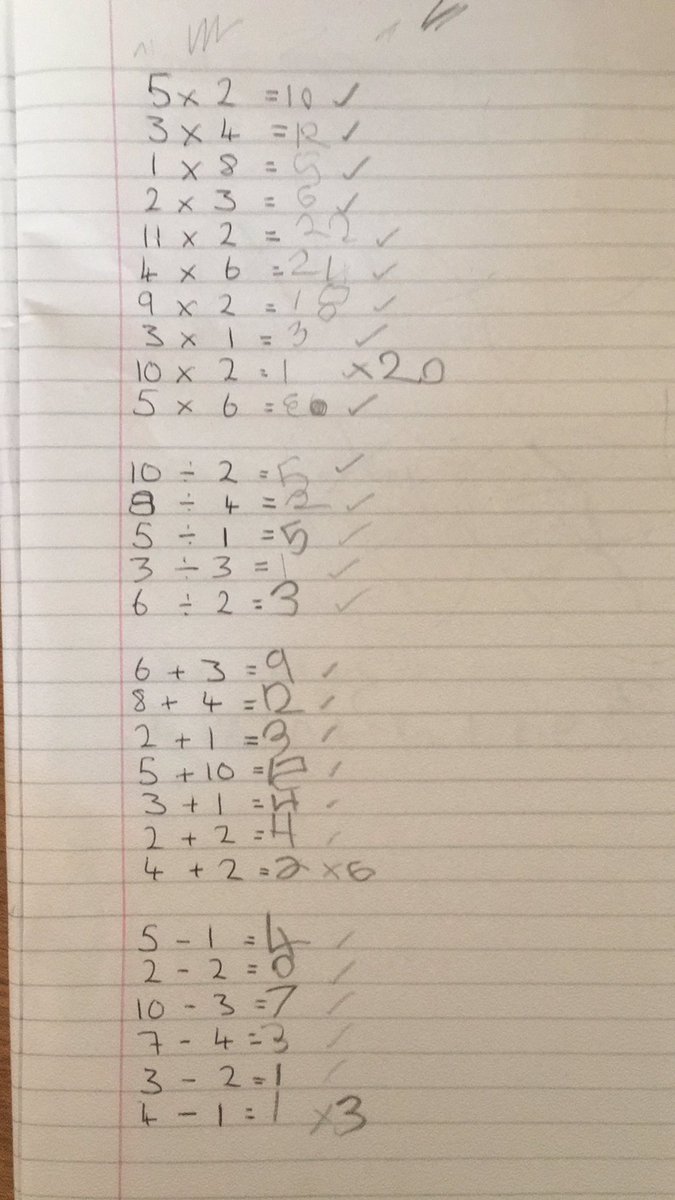 5 × 2 = 10 ✓
3 × 4 = 12 ✓
1 × 8 = ✓
2 × 3 = 6 ✓
11 × 2 = 22 ✓
4 × 6 = 24 ✓
9 × 2 = 18 ✓
3 × 1 = 3 ✓
10 × 2 = 1 × 20
5 × 6 = ✓
10 ÷ 2 = 5 ✓
8 ÷ 4 = 2 ✓
5 ÷ 1 = 5 ✓
3 ÷ 3 = 1 ✓
6 ÷ 2 = 3 ✓
6 + 3 = 9 ✓
8 + 4 = 12 ✓
2 + 1 = 3 ✓
5 + 10 = 15 ✓
3 + 1 = 4 ✓
2 + 2 = 4 ✓
4 + 2 = 2 × 6
5 - 1 = 4 ✓
2 - 2 = 0 ✓
10 - 3 = 7 ✓
7 - 4 = 3 ✓
3 - 2 = 1 ✓
4 - 1 = 1 × 3